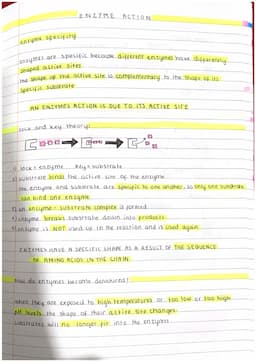 ENZYME ACTION
enzyme specificity
enzymes are specific because different enzymes have differently
shaped active sites
the shape of the active site is complementary to the shape of its
specific substrate
AN ENZYMES ACTION IS DUE TO ITS ACTIVE SITE
lock and key theory:
lock = enzyme key = substrate
substrate binds the active site of the enzyme
the enzyme and substrate are specific to one another, so only one substrate
can bind one enzyme
an enzyme - substrate complex is formed
enzyme breaks substrate down into products
enzyme is NOT used up in the reaction and is used again
ENZYMES HAVE A SPECIFIC SHAPE AS A RESULT OF THE SEQUENCE
OF AMINO ACIDS IN THE CHAIN
how do enzymes become denatured?
when they are exposed to high temperatures or too low or too high
pH levels the shape of their active site changes.
substrates will no longer fit into the enzymes